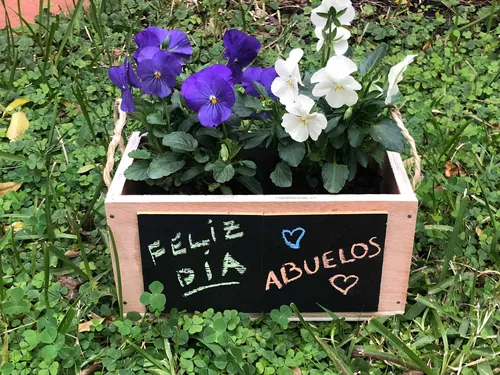 FELIZ
DÍA
ABUELOS